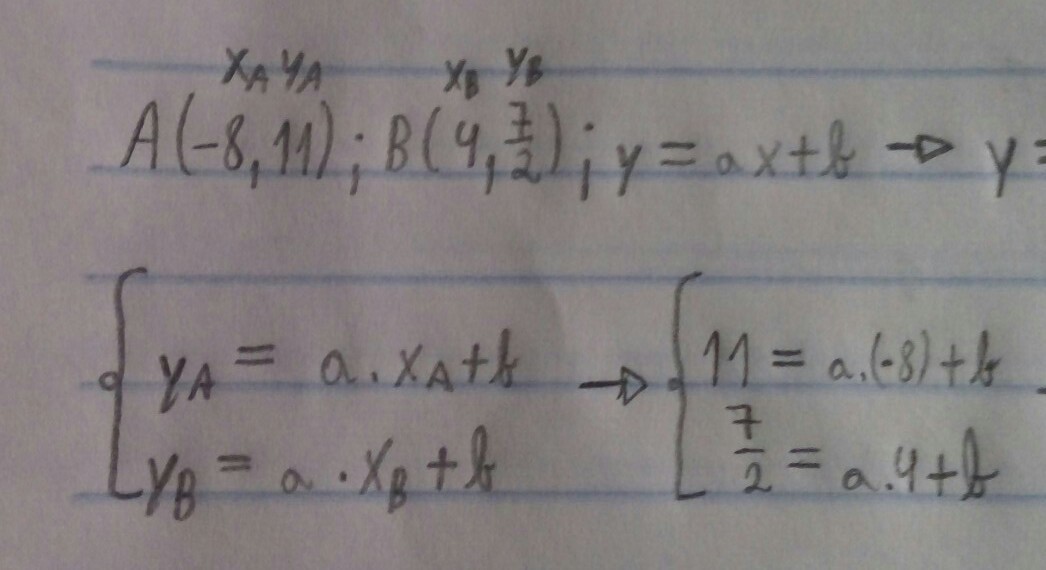 xA yA xB yB
A(-8,11); B(4,7/2); y = ax+b → y =
{ yA = a.xA+b → { 11 = a.(-8)+b
yB = a.xB+b 7/2 = a.4+b